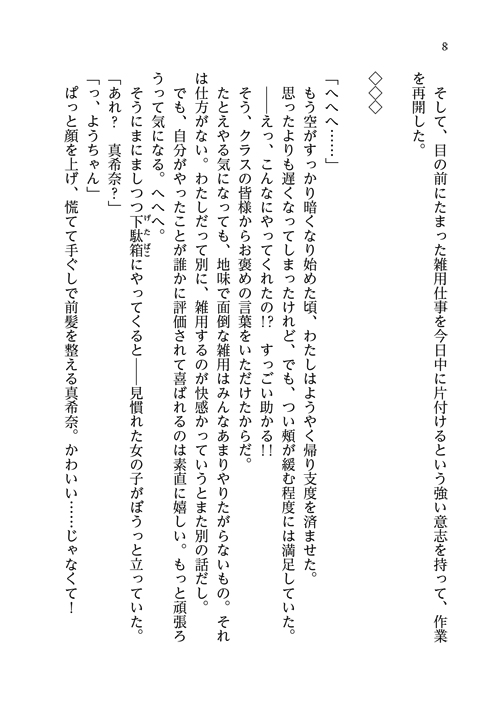 8
そして、目の前にたまった雑用仕事を今日中に片付けるという強い意志を持って、作業
を再開した。
◇◇◇
「へへへ……」
もう空がすっかり暗くなり始めた頃、わたしはようやく帰り支度を済ませた。
思ったよりも遅くなってしまったけれど、でも、つい頬が緩む程度には満足していた。
――えっ、こんなにやってくれたの!? すっごい助かる!!
そう、クラスの皆様からお褒めの言葉をいただけたからだ。
たとえやる気になっても、地味で面倒な雑用はみんなあまりやりたがらないもの。それ
は仕方がない。わたしだって別に、雑用するのが快感かっていうとまた別の話だし。
でも、自分がやったことが誰かに評価されて喜ばれるのは素直に嬉しい。もっと頑張ろ
うって気になる。へへへ。
そうにまにましつつ下駄箱にやってくると――見慣れた女の子がぼうっと立っていた。
「あれ? 真希奈?」
「っ、ようちゃん」
ぱっと顔を上げ、慌てて手ぐしで前髪を整える真希奈。かわいい……じゃなくて!